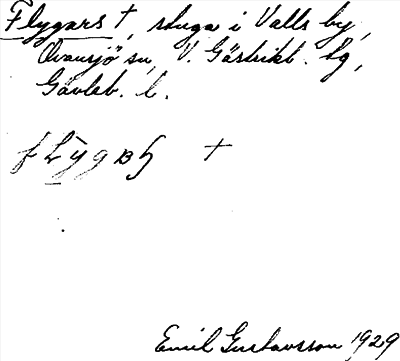 Flygars †, stuga i Valls by,
Ovansjö sn, V. Gästrikl. tg,
Gävleb. l.
†
Emil Gustavsson 1929